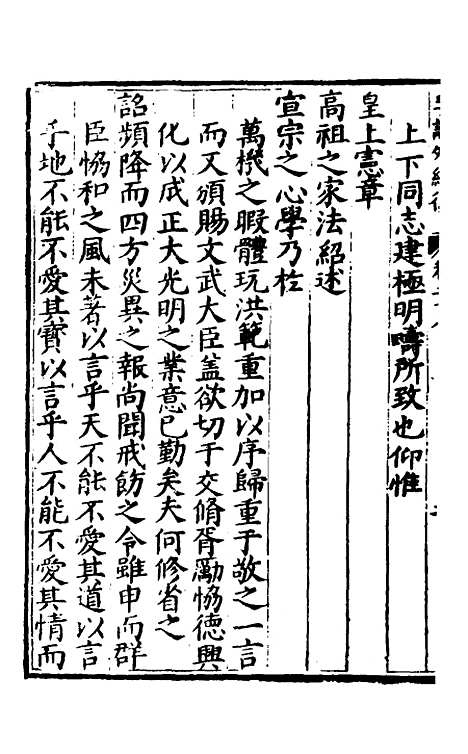 上下同志建極明疇所致也仰惟
皇上憲章
高祖之家法紹述
宣宗之心學乃於
萬機之暇體玩洪範重加以序歸重于敬之一言
而又頒賜文武大臣盖欲切于交脩胥勵恊德興
化以成正大光明之業意已勤矣夫何修省之
詔頻降而四方災異之報尚聞戒飭之令雖申而群
臣恊和之風未著以言乎天不能不愛其道以言
乎地不能不愛其寶以言乎人不能不愛其情而